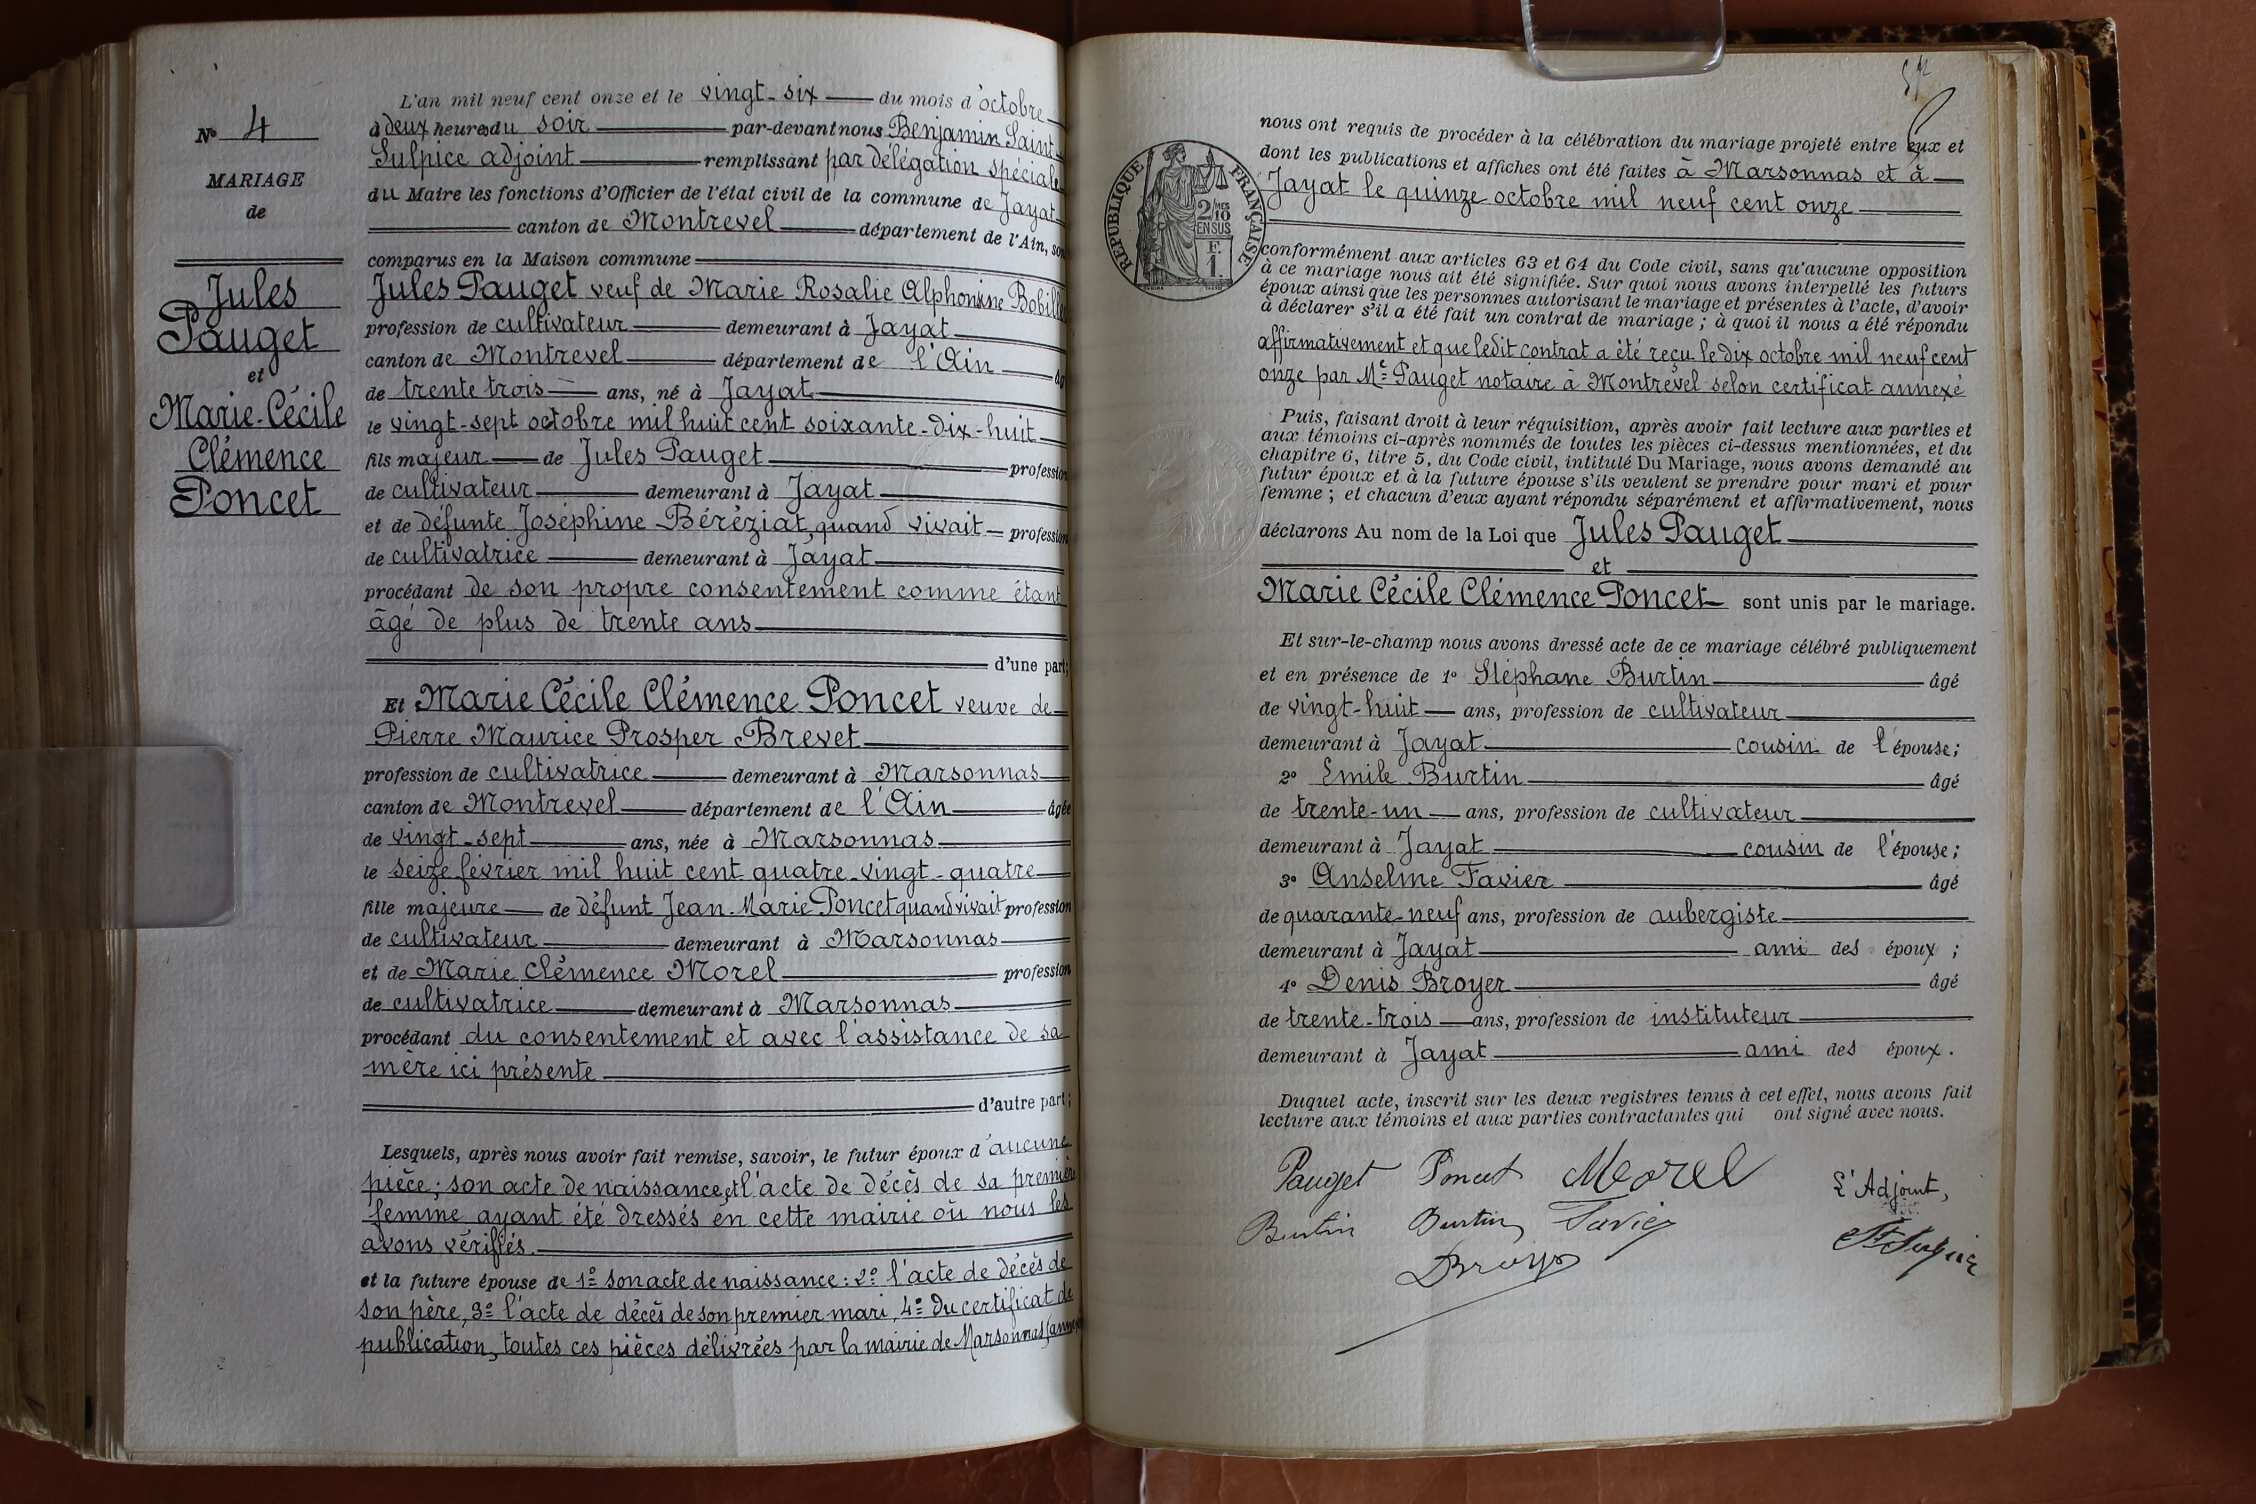 N° 4
MARIAGE
de
Jules
Pauget
et
Marie-Cécile
Clémence
Poncet
L'an mil neuf cent onze et le vingt-six du mois d'octobre
à deux heures du soir par-devant nous Benjamin Saint-
Sulpice adjoint remplissant par délégation spéciale
du Maire les fonctions d'Officier de l'état civil de la commune de Jayat
canton de Montrevel département de l'Ain, son
comparus en la Maison commune
Jules Pauget veuf de Marie Rosalie Alphonsine Bobillo
profession de cultivateur demeurant à Jayat
canton de Montrevel département de l'Ain âg
de trente trois ans, né à Jayat
le vingt-sept octobre mil huit cent soixante-dix-huit
fils majeur de Jules Pauget profession
de cultivateur demeurant à Jayat
et de défunte Joséphine Béréziat, quand vivait profession
de cultivatrice demeurant à Jayat
procédant de son propre consentement comme étant
âgé de plus de trente ans
d'une part;
Et Marie Cécile Clémence Poncet veuve de
Pierre Maurice Prosper Brevet
profession de cultivatrice demeurant à Marsonnas
canton de Montrevel département de l'Ain âgée
de vingt-sept ans, née à Marsonnas
le seize février mil huit cent quatre-vingt-quatre
fille majeure de défunt Jean-Marie Poncet quand vivait profession
de cultivateur demeurant à Marsonnas
et de Marie Clémence Morel profession
de cultivatrice demeurant à Marsonnas
procédant du consentement et avec l'assistance de sa
mère ici présente
d'autre part;
Lesquels, après nous avoir fait remise, savoir, le futur époux d'aucune
pièce; son acte de naissance et l'acte de décès de sa première
femme ayant été dressés en cette mairie où nous les
avons vérifiés.
et la future épouse de 1° son acte de naissance: 2° l'acte de décès de
son père, 3° l'acte de décès de son premier mari, 4° du certificat de
publication, toutes ces pièces délivrées par la mairie de Marsonnas
RÉPUBLIQUE FRANÇAISE
2/10 MES
EN SUS
F.
1.
nous ont requis de procéder à la célébration du mariage projeté entre eux et
dont les publications et affiches ont été faites à Marsonnas et à
Jayat le quinze octobre mil neuf cent onze
conformément aux articles 63 et 64 du Code civil, sans qu'aucune opposition
à ce mariage nous ait été signifiée. Sur quoi nous avons interpellé les futurs
époux ainsi que les personnes autorisant le mariage et présentes à l'acte, d'avoir
à déclarer s'il a été fait un contrat de mariage; à quoi il nous a été répondu
affirmativement et que ledit contrat a été reçu le dix octobre mil neuf cent
onze par Me Pauget notaire à Montrevel selon certificat annexé
Puis, faisant droit à leur réquisition, après avoir fait lecture aux parties et
aux témoins ci-après nommés de toutes les pièces ci-dessus mentionnées, et du
chapitre 6, titre 5, du Code civil, intitulé Du Mariage, nous avons demandé au
futur époux et à la future épouse s'ils veulent se prendre pour mari et pour
femme; et chacun d'eux ayant répondu séparément et affirmativement, nous
déclarons Au nom de la Loi que Jules Pauget
et
Marie Cécile Clémence Poncet sont unis par le mariage.
Et sur-le-champ nous avons dressé acte de ce mariage célébré publiquement
et en présence de 1° Stéphane Burtin âgé
de vingt-huit ans, profession de cultivateur
demeurant à Jayat cousin de l'épouse;
2° Emile Burtin âgé
de trente-un ans, profession de cultivateur
demeurant à Jayat cousin de l'épouse;
3° Anselme Favier âgé
de quarante-neuf ans, profession de aubergiste
demeurant à Jayat ami des époux;
4° Denis Broyer âgé
de trente-trois ans, profession de instituteur
demeurant à Jayat ami des époux.
Duquel acte, inscrit sur les deux registres tenus à cet effet, nous avons fait
lecture aux témoins et aux parties contractantes qui ont signé avec nous.
Pauget Poncet Morel L'Adjoint,
Burtin Burtin Favier St Sulpice
Broyer